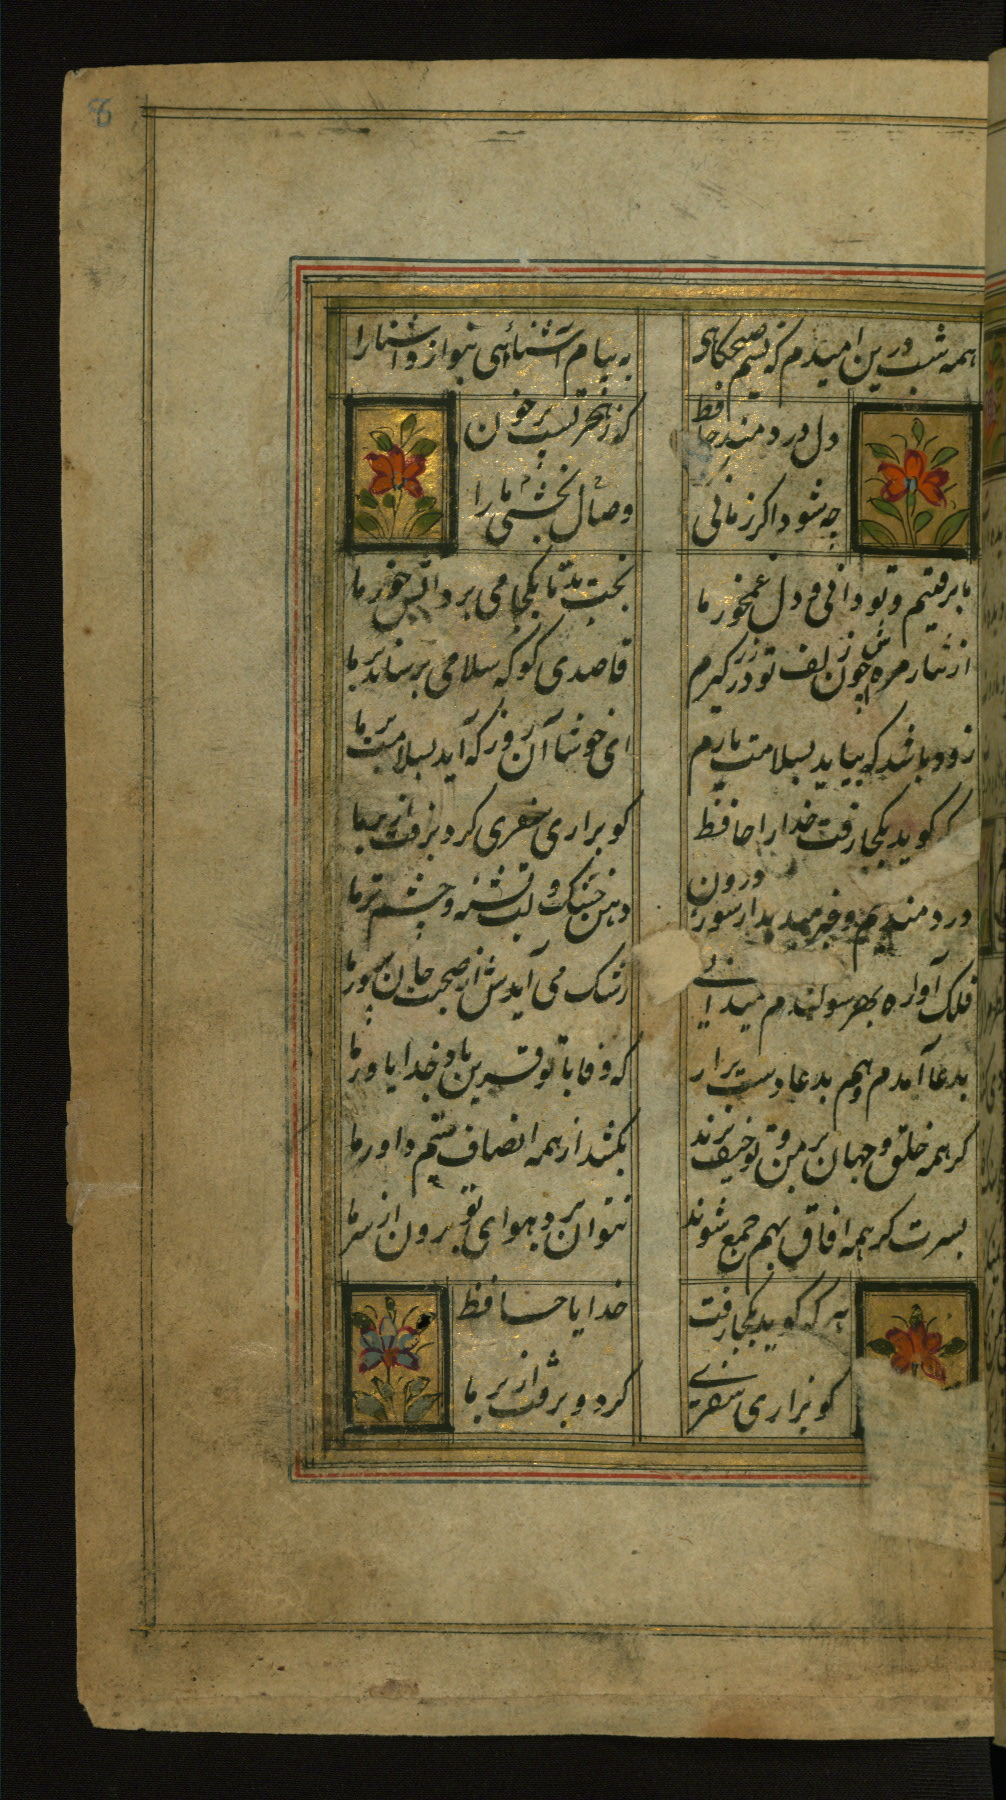 8
همه شب درین امیدم که نسیم صبحگاهی
به پیام آشنائی بنوازد آشنا را
دل دردمند حافظ
که ز هجر تست پر خون
چه شود اگر زمانی
وصال بخشی ما را
ما برفتیم و تو دانی و دل غمخور ما
بخت بد تا بکجا می برد آبشخور ما
از نثار مژه چون زلف تو در زر گیرم
قاصدی کو که سلامی برساند بر ما
زود باشد که بیاید بسلامت یارم
ای خوشا آن روز که آید بسلامت بر ما
گوید بکجا رفت خدا را حافظ
کو بزاری سفری کرد برفت از بر ما
دردمندیم و درون
دهن خشک و لب تشنه و چشم تر ما
فلک آواره بهر سو کندم میدانی
رشک می آیدش از صحبت جان پرور ما
بدعا آمدم و هم بدعا دست برار
که وفا با تو قرین باد و خدا یاور ما
گر همه خلق و جهان بر من و تو حیف برند
بکشد از همه انصاف ستم داور ما
بسرت گر همه آفاق بهم جمع شوند
نتوان برد هوای تو برون از سر ما
هر که گوید بکجا رفت
خدایا حافظ
کو بزاری سفری
کرد و برفت از بر ما